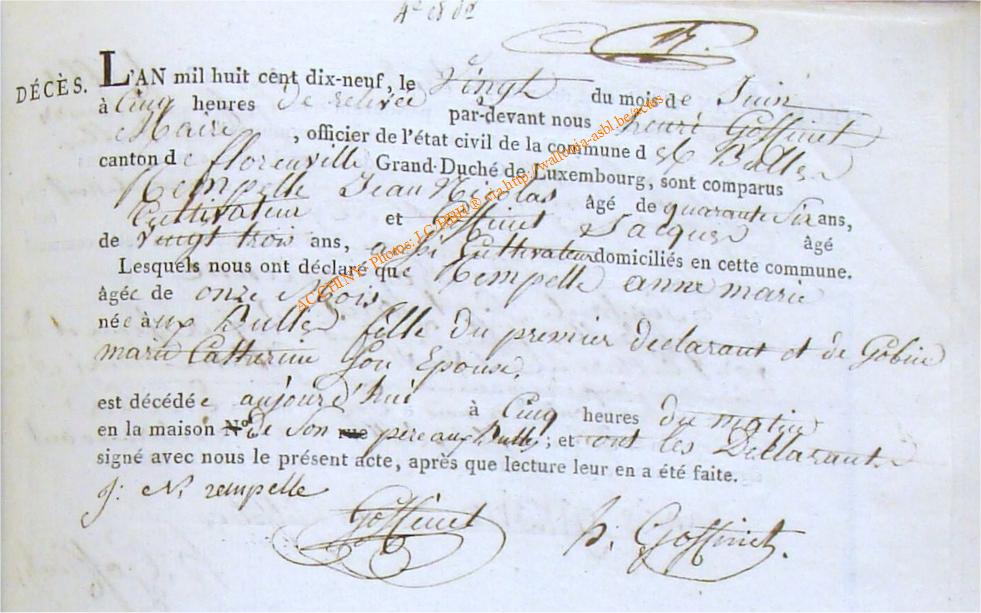 DÉCÈS.
L'AN mil huit cent dix-neuf, le Vingt du mois de Juin
à Cinq heures de relivée par-devant nous henri Goffinet
Maire, officier de l'état civil de la commune d es Bulles
canton de florenville Grand-Duché de Luxembourg, sont comparus
Rempelle Jean Nicolas âgé de quarante Six ans,
Cultivateur et Goffinet Jacques âgé
de Vingt trois ans, aussi Cultivateur domiciliés en cette commune.
Lesquels nous ont déclaré que Rempelle anne marie
âgée de onze Mois
née aux Bulles fille du premier declarant et de Gobin
marie Catherine Son Epouse
est décédée aujourd'hui à Cinq heures du matin
en la maison N.º de Son rue père aux Bulles; et ont les Declarants
signé avec nous le présent acte, après que lecture leur en a été faite.
J: N. rempelle
Goffinet
h. Goffinet.
ACCHINY Photos: via http://wallonia-asbl.be/actes